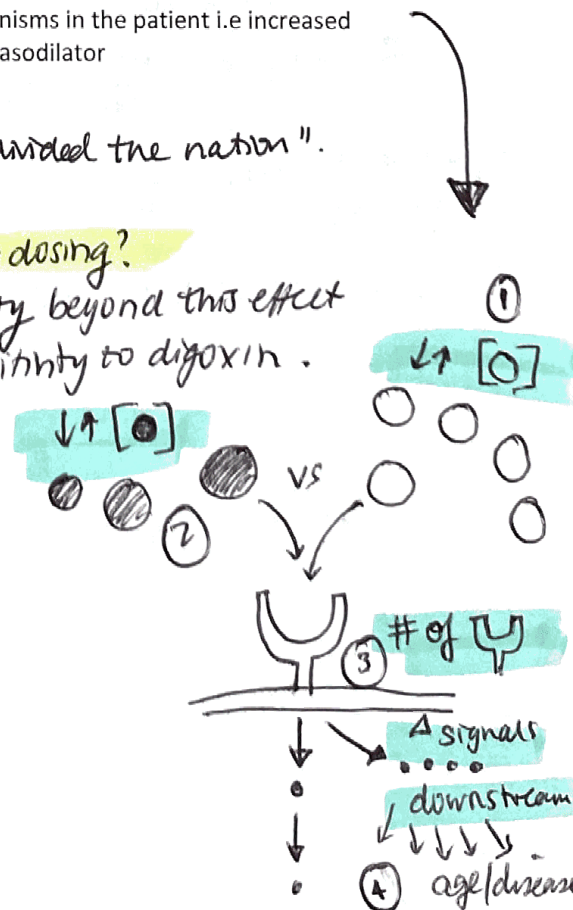 nisms in the patient i.e increased
asodilator
the nation".
dosing?
beyond this effect
to digoxin.
1
↓↑ [○]
↓↑ [●]
vs
2
# of
3
Δ signals
downstream
4 age/disease